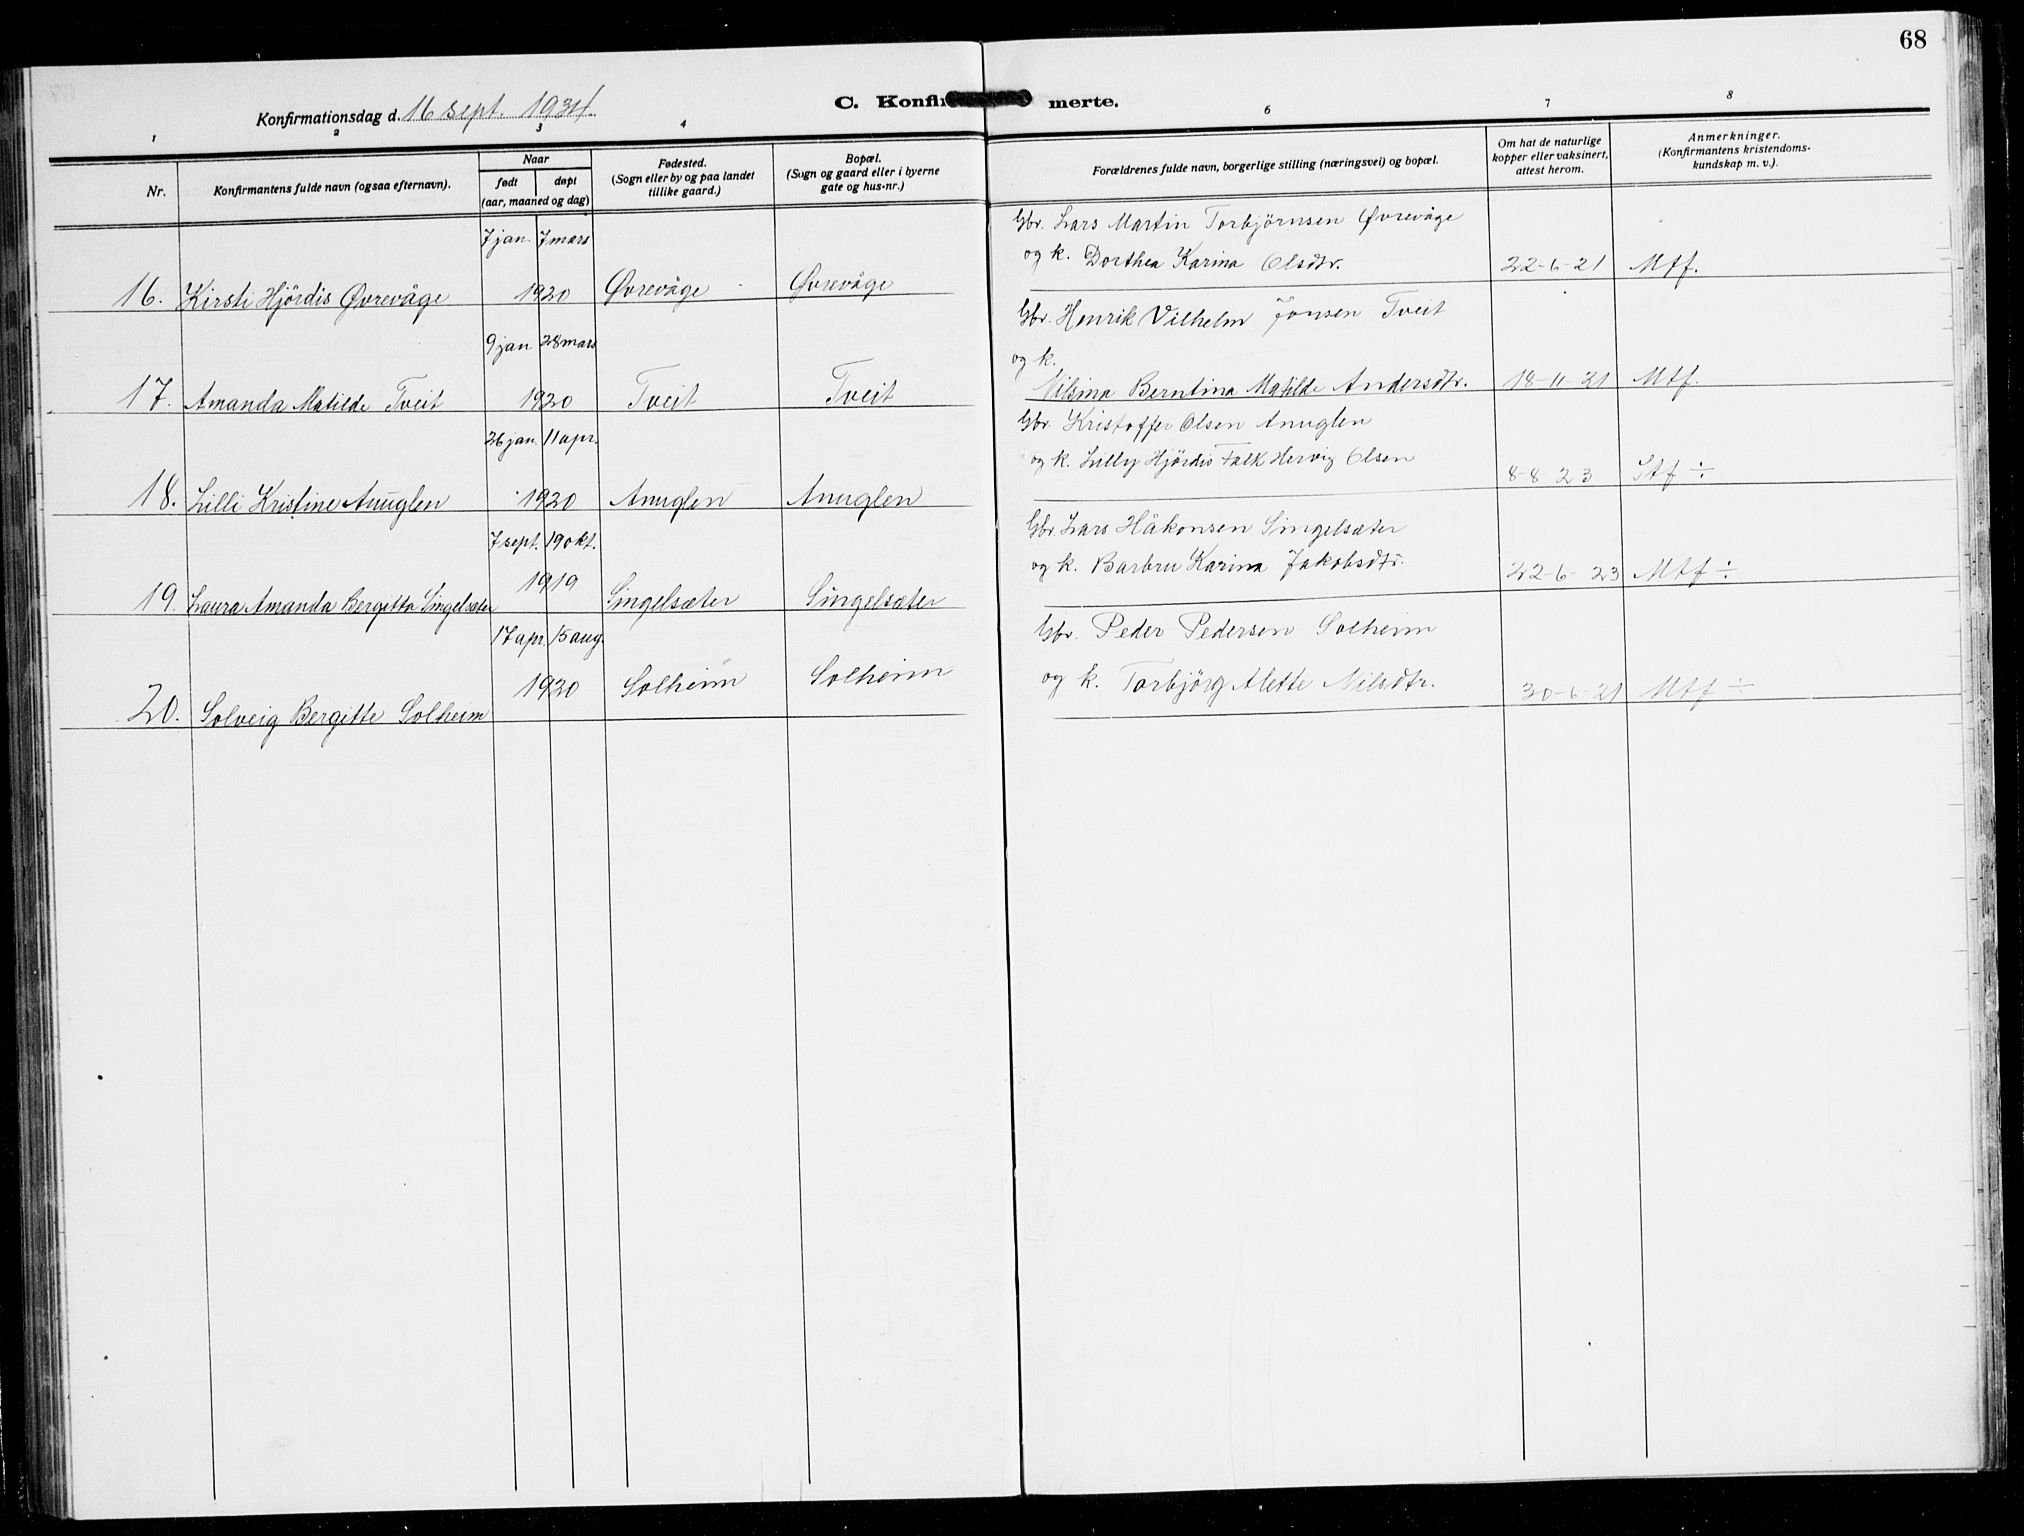 68
Konfirmationsdag d. 16 sept. 1934.
C. Konfir merte.
1 2 3 4 6 7 8
Nr.
Konfirmantens fulde navn (ogsaa efternavn).
Naar
født døpt
(aar, maaned og dag)
Fødested.
(Sogn eller by og paa landet
tillike gaard.)
Bopæl.
(Sogn og gaard eller i byerne
gate og hus-nr.)
Forældrenes fulde navn, borgerlige stilling (næringsvei) og bopæl.
Om hat de naturlige
kopper eller vaksinert,
attest herom.
Anmerkninger.
(Konfirmantens kristendoms-
kundskap m. v.).
7 jan. 7 mars
Gbr. Lars Martin Torbjörnsen Øvrevåge
og k. Dorthea Karina Olsdtr. 22-6-21 Mtf.
16. Kirsti Hjördis Øvrevåge 1920 Øvrevåge Øvrevåge
9 jan. 28 mars
Gbr. Henrik Vilhelm Jonsen Tveit
og k.
Nilsina Berntina Matilde Andersdtr. 18-11-21 Mtf.
17. Amanda Matilde Tveit 1920 Tveit Tveit
26 jan. 11 apr.
Gbr. Kristoffer Olsen Anuglen
og k. Lilly Hjördis Falk Hervig Olsen 8-8-23 Stf ÷
18. Lilli Kristine Anuglen 1920 Anuglen Anuglen
7 sept. 19 okt.
Gbr. Lars Håkonsen Singelsæter
og k. Barbru Karina Jakobsdtr. 22-6-23 Mtf ÷
19. Laura Amanda Bergitta Singelsæter 1919 Singelsæter Singelsæter
17 apr. 15 aug.
Gbr. Peder Pedersen Solheim
og k. Torbjörg Alette Nilsdtr. 30-6-21 Mtf ÷
20. Solveig Bergitte Solheim 1920 Solheim Solheim